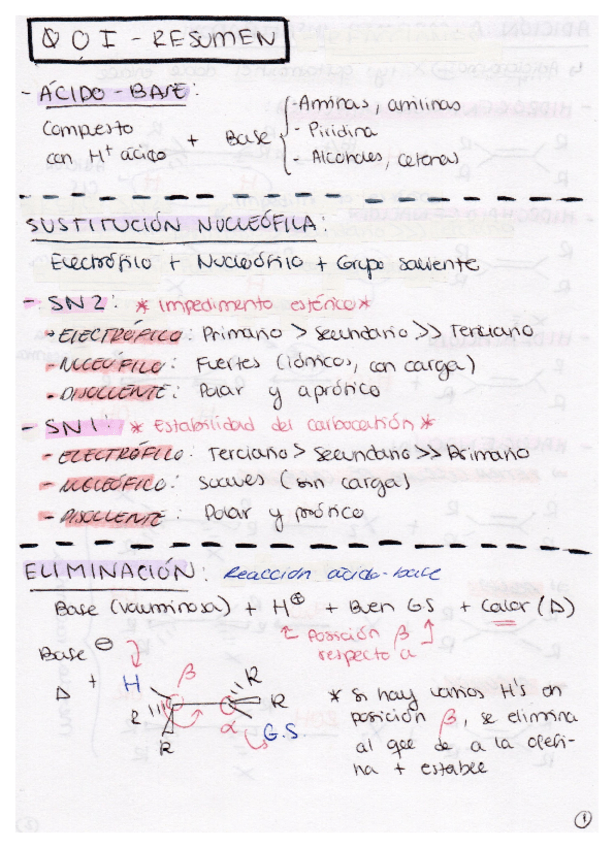 QOI - RESUMEN
- ÁCIDO-BASE:
Compuesto con H+ ácido + Base
- Aminas, anilinas
- Piridina
- Alcoholes, cetonas
SUSTITUCIÓN NUCLEÓFILA:
Electrófilo + Nucleófilo + Grupo saliente
- SN2: * Impedimento estérico *
- ELECTRÓFILO: Primario > Secundario >> Terciario
- NUCLEÓFILO: Fuertes (iónicos, con carga)
- DISOLVENTE: Polar y aprótico
- SN1: * Estabilidad del carbocatión *
- ELECTRÓFILO: Terciario > Secundario >> Primario
- NUCLEÓFILO: Suaves (sin carga)
- DISOLVENTE: Polar y prótico
ELIMINACIÓN: Reacción ácido-base
Base (voluminosa) + H⊕ + Buen G.S + Calor (Δ)
Posición β
respecto α
Base ⊖
Δ +
H
β
R
R
R
R
α
G.S.
* Si hay varios H's en
posición β, se elimina
al que de a la olefi-
na + estable
1